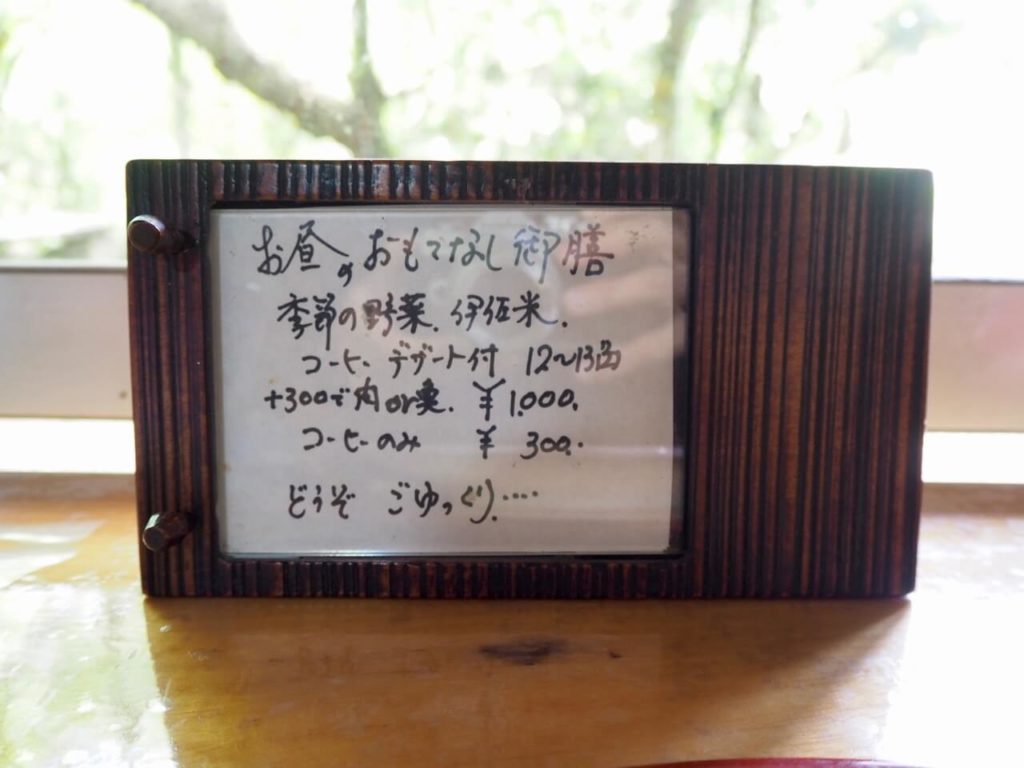 お昼のおもてなし御膳
季節の野菜.伊佐米.
コーヒー デザート付 12〜13品
+300で肉or魚. ¥1.000.
コーヒーのみ ¥300.
どうぞ ごゆっくり.....